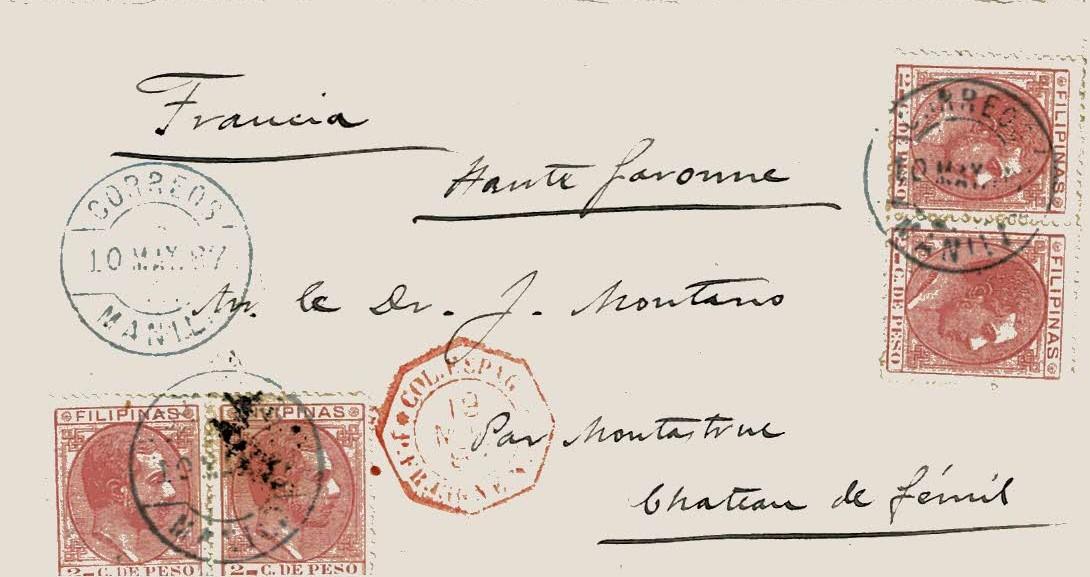 Francia
Haute Garonne
CORREOS
10 MAY. 87
MANILA
Mr. le Dr. J. Montano
Par Montastruc
Chateau de
COL. ESPAG.
FILIPINAS
2 C. DE PESO
FILIPINAS
2 C. DE PESO
CORREOS
10 MAY.
MANILA
FILIPINAS
2 C. DE PESO
FILIPINAS
2 C. DE PESO